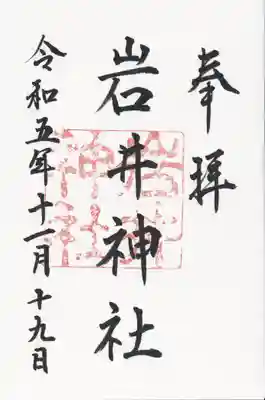 奉拝
岩井神社
令和五年十一月十九日